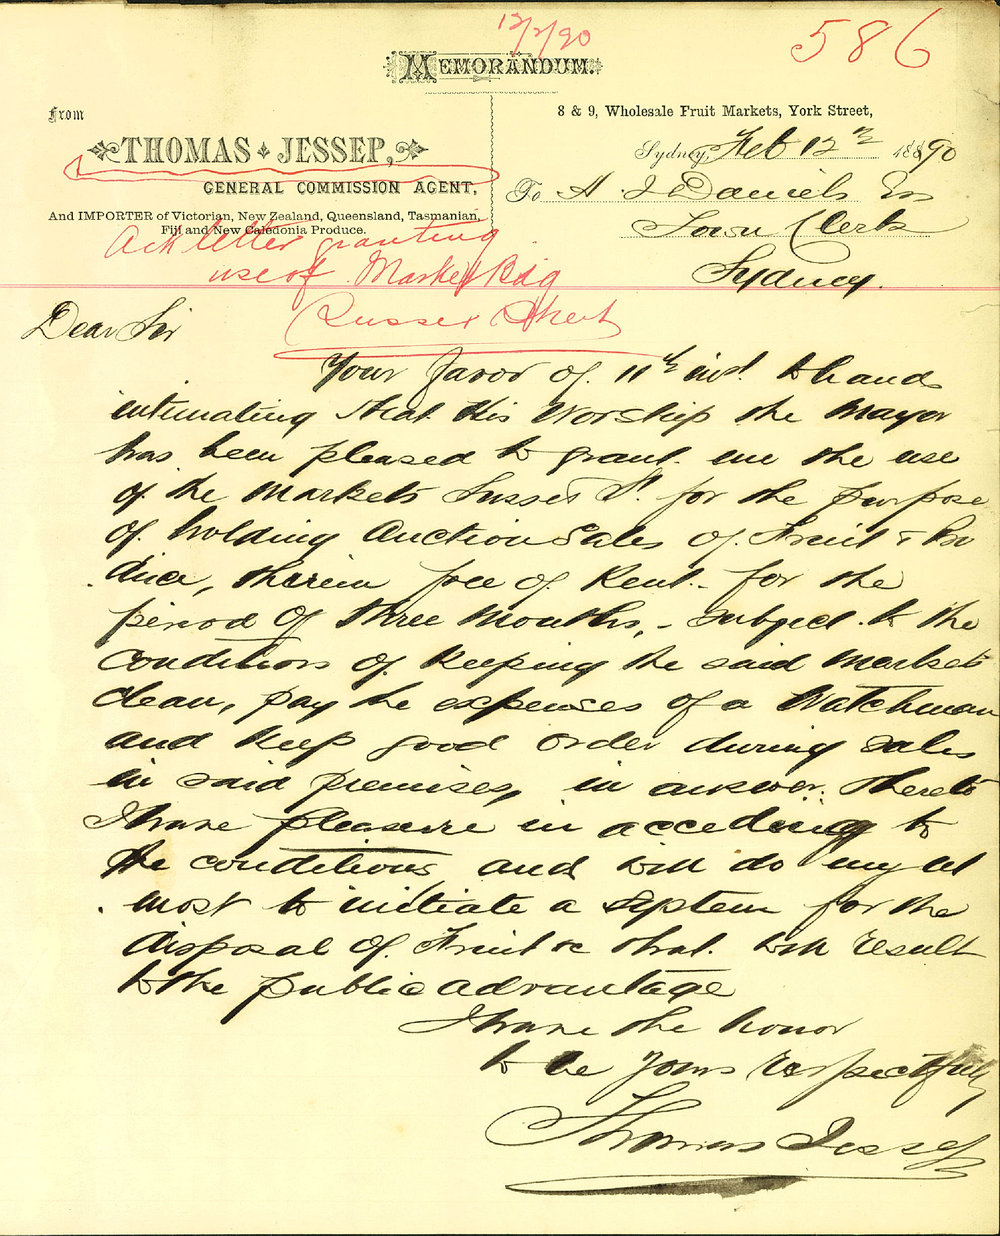 12/2/90
586
MEMORANDUM.
From
8 & 9, Wholesale Fruit Markets, York Street,
THOMAS JESSEP,
Sydney, Feb 12th 1890
GENERAL COMMISSION AGENT,
To H. J. Daniels Esq
And IMPORTER of Victorian, New Zealand, Queensland, Tasmanian,
Fiji and New Caledonia Produce.
Town Clerk
Sydney.
Ack letter granting
use of Market Bdg
Sussex Street
Dear Sir
Your favor of 11th inst. to hand
intimating that His Worship the Mayor
has been pleased to grant me the use
of the Markets Sussex St. for the purpose
of holding Auction Sales of Fruit & Pro
duce, therein free of Rent - for the
period of three Months, - subject to the
conditions of keeping the said Markets
clean, pay the expenses of a Watchman
and keep good order during sales
in said premises, in answer thereto
I have pleasure in acceding to
the conditions and will do my ut
most to initiate a system for the
disposal of Fruit &c that will result
to the public advantage
I have the honor
to be Yours respectfully
Thomas Jessep